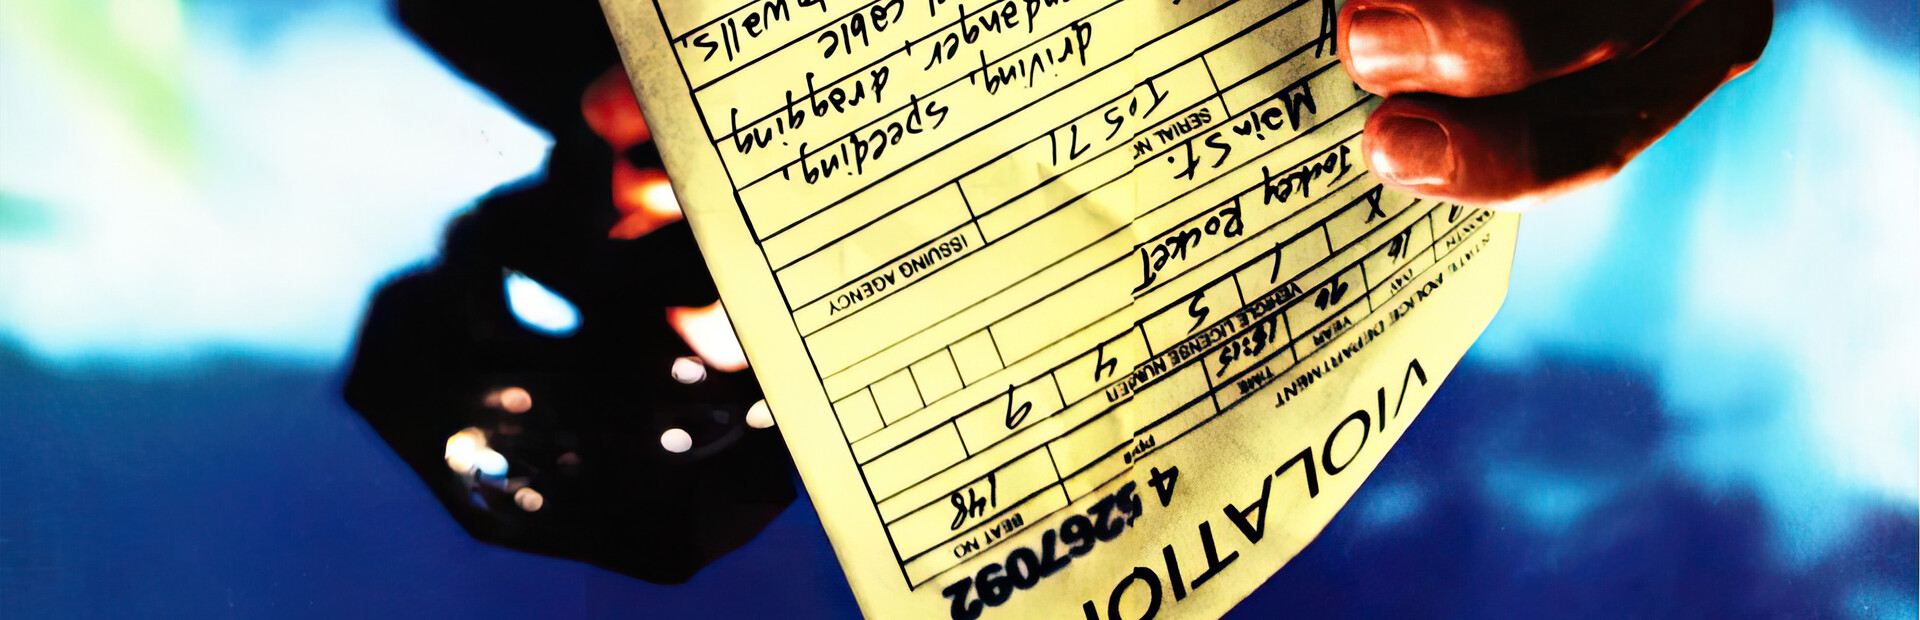 VIOLATIO
4 5267092
POLICE DEPARTMENT
DAY YEAR TIME BEAT NO
16 96 148
VEHICLE LICENSE NUMBER
X 1 5 4 9
Jockey Rocket
Main St.
SERIAL NR ISSUING AGENCY
TOS 71
driving, speeding,
ndanger, dragging
l cable
walls.